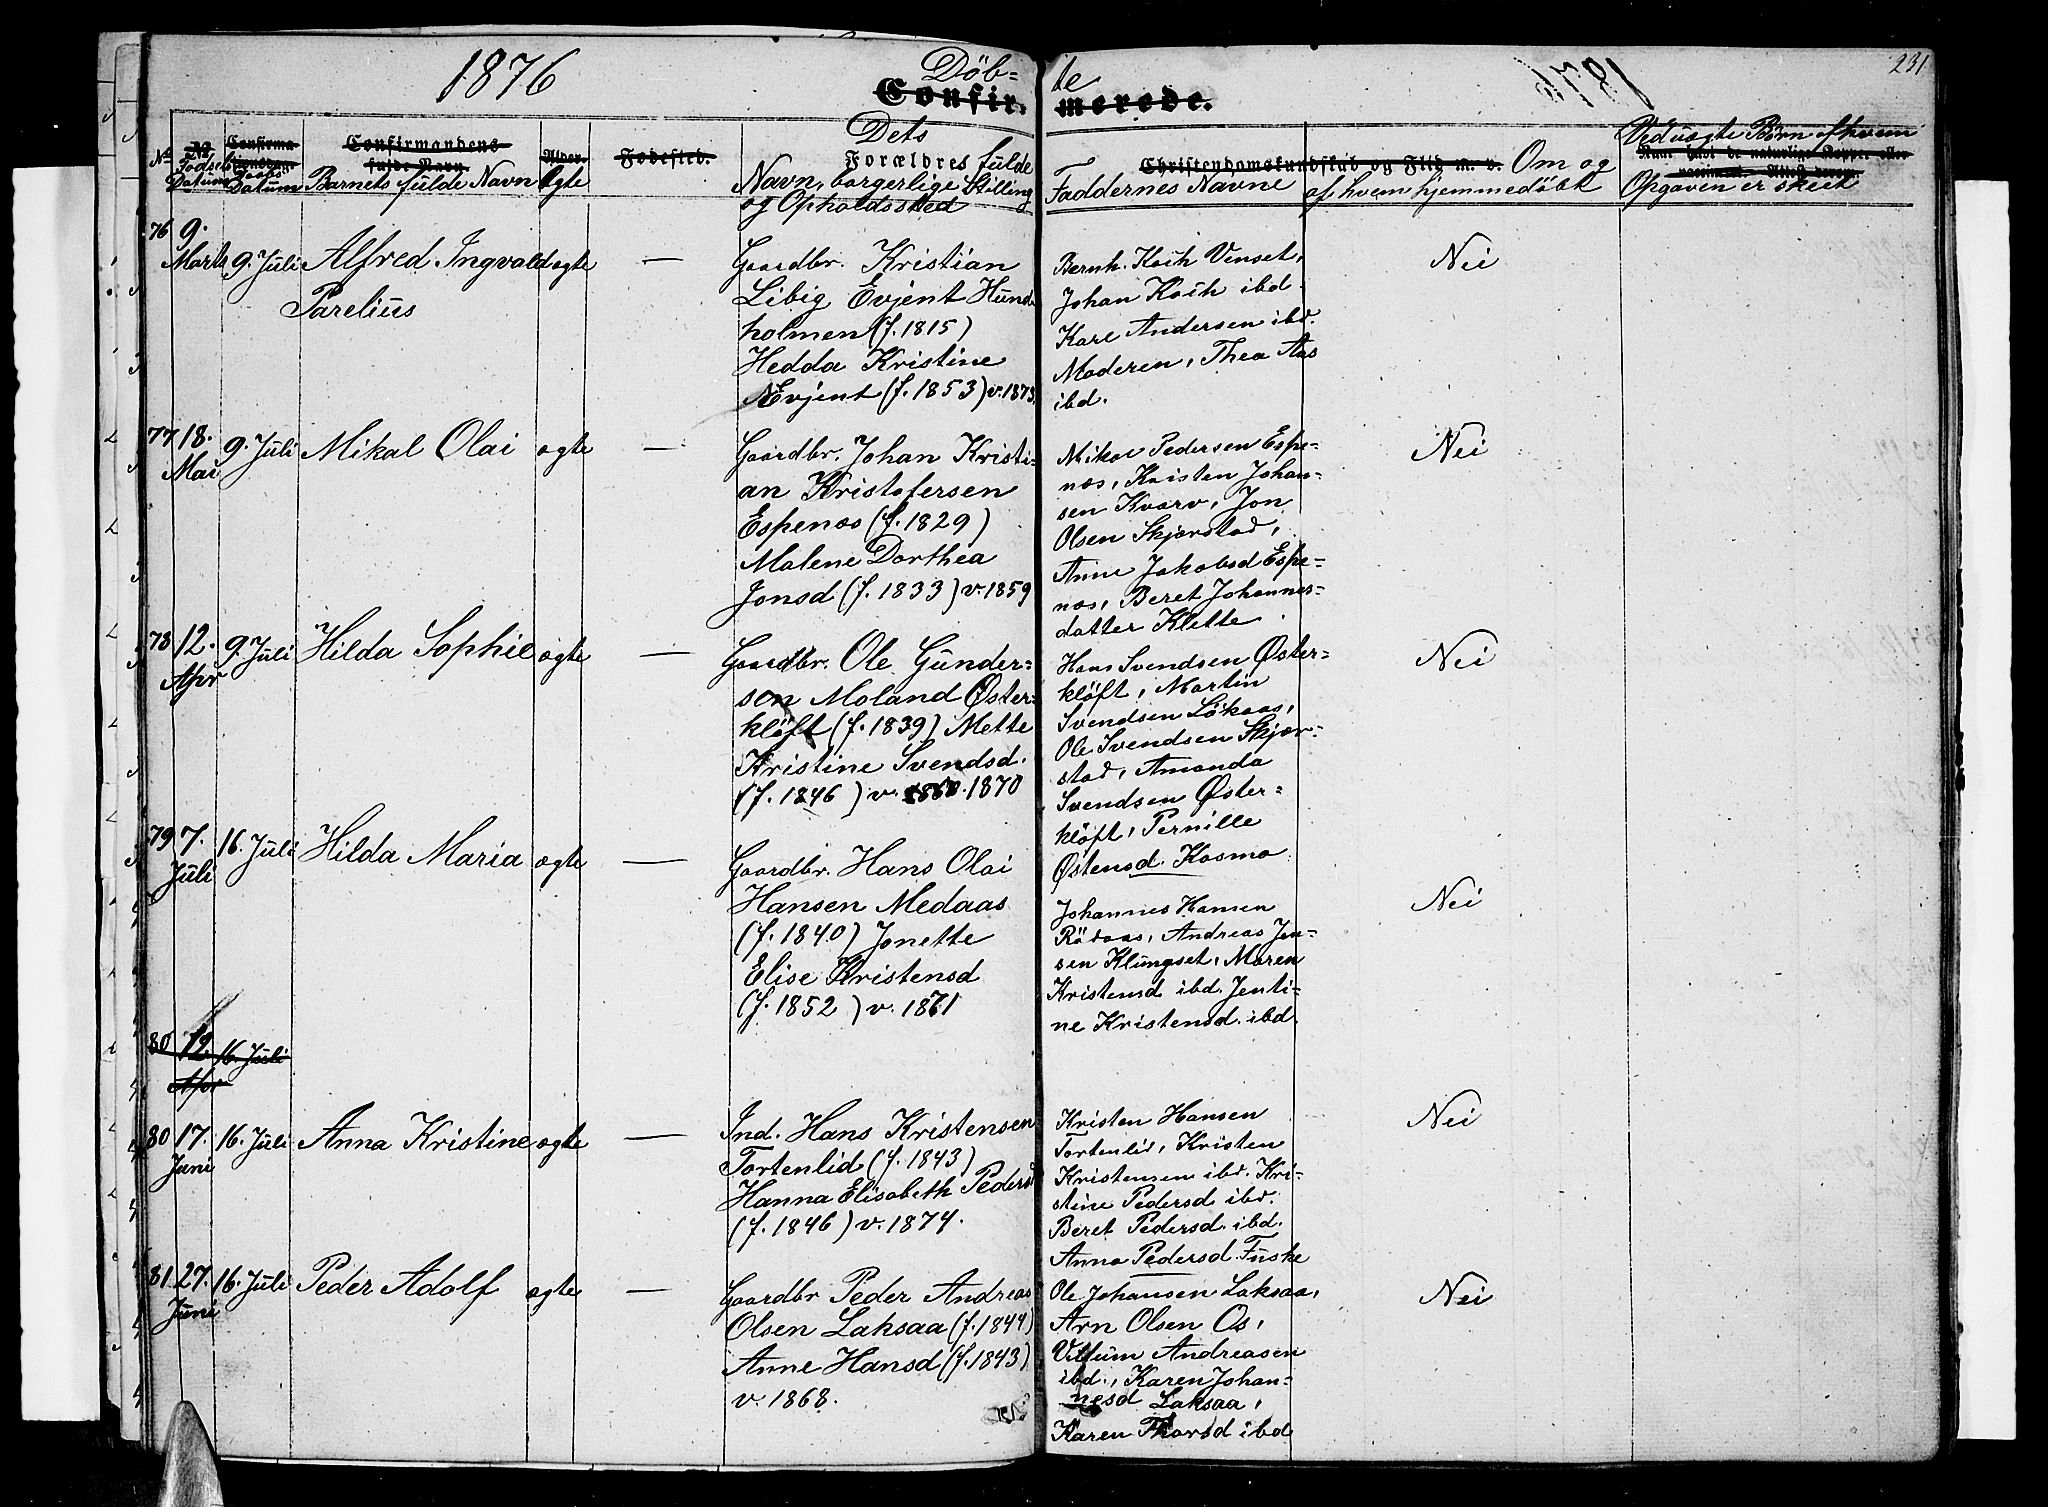 1876
Döb=
te
1876
231
Confir.
merede.
No
Födsels
Datum
Daabs
Datum
Confirmandens
fulde Navn
Barnets fulde Navn
Alder.
Ægte
Fødested.
Dets
Forældres fulde
Navn, borgerlige Stilling
og Opholdssted
Christendomskundskab og Flid m. v.
Faddernes Navne
Om og
af hvem hjemmedöbt
Ved uægte Börn af hvem
Opgaven er skeet
76 9.
Marts 9. Juli Alfred Ingvald ægte —
Parelius
Gaardbr. Kristian
Libig Evjent Hund
holmen (f. 1815)
Hedda Kristine
Evjent (f. 1853) v. 1873.
Bernh. Koch Venset,
Johan Koch ibd.
Karl Andersen ibd.
Moderen, Thea Aas
ibd.
Nei
77 18.
Mai 9. Juli Mikal Olai ægte —
Gaardbr. Johan Kristi-
an Kristofersen
Espenæs (f. 1829)
Malene Dorthea
Jonsd (f. 1833) v. 1859
Mikal Pedersen Espe-
næs, Kristen Johan-
sen Kvarv, Jon
Olsen Skjærstad,
Anne Jakobsd Espe-
næs, Beret Johannes-
datter Klette.
Nei
78 12.
Apr 9. Juli Hilda Sophie ægte —
Gaardbr. Ole Gunder-
sen Moland Øster-
klöft (f. 1839) Mette
Kristine Svendsd.
(f. 1846) v. 1870
Hans Svendsen Øster-
klöft, Martin
Svendsen Lökaas,
Ole Svendsen Skjær-
stad, Amanda
Svendsen Øster-
klöft, Pernille
Østensd. Kosmo
Nei
79 7.
Juli 16. Juli Hilda Maria ægte —
Gaardbr. Hans Olai
Hansen Medaas
(f. 1840) Jonette
Elise Kristensd
(f. 1852) v. 1871
Johannes Hansen
Rödaas, Andreas Jen-
sen Klungset, Maren
Kristensd ibd. Jenti-
ne Kristensd. ibd.
Nei
80 12 16. Juli
Apr
80 17. 16. Juli Anna Kristine ægte —
Juni
Ind. Hans Kristensen
Tortenlid (f. 1843)
Hanna Elisabeth Pedersd
(f. 1846) v. 1874.
Kristen Hansen
Tortenlid, Kristen
Kristensen ibd. Kri-
stine Pedersd ibd.
Beret Pedersd. ibd.
Anna Pedersd. Fuske
Nei
81 27. 16. Juli Peder Adolf ægte —
Juni
Gaardbr Peder Andreas
Olsen Laksaa (f. 1844)
Anne Hansd (f. 1843)
v. 1868.
Ole Johansen Laksaa,
Arn Olsen Os,
Villum Andreasen
ibd., Karen Johan-
nesd Laksaa,
Karen Thorsd ibd
Nei